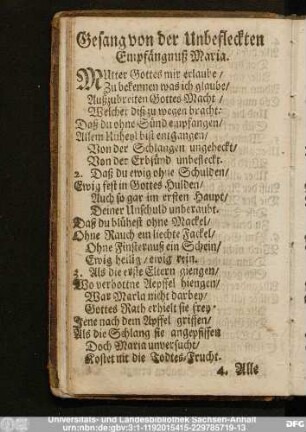 Gesang von der Unbefleckten
Empfängnuß Maria.
MUtter Gottes mir erlaube/
Zu bekennen was ich glaube/
Außzubreiten Gottes Macht/
Welcher diß zu wegen bracht:
Daß du ohne Sünd empfangen/
Allem Unheyl bist entgangen/
Von der Schlangen ungeheckt/
Von der Erbsünd unbefleckt.
2. Daß du ewig ohne Schulden/
Ewig fest in Gottes Hulden/
Auch so gar im ersten Haupt/
Deiner Unschuld unberaubt.
Daß du blühest ohne Mackel/
Ohne Rauch ein liechte Fackel/
Ohne Finsternuß ein Schein/
Ewig heilig/ ewig rein.
3. Als die erste Eltern giengen/
Wo verbottne Aepffel hiengen/
War Maria nicht darbey/
Gottes Rath erhielt sie frey.
Jene nach dem Apffel griffen/
Als die Schlang sie angepfiffen
Doch Maria unversucht/
Kostet nit die Todtes-Frucht.
4. Alle
Universitäts- und Landesbibliothek Sachsen-Anhalt
urn:nbn:de:gbv:3:1-1192015415-229785719-13
DFG